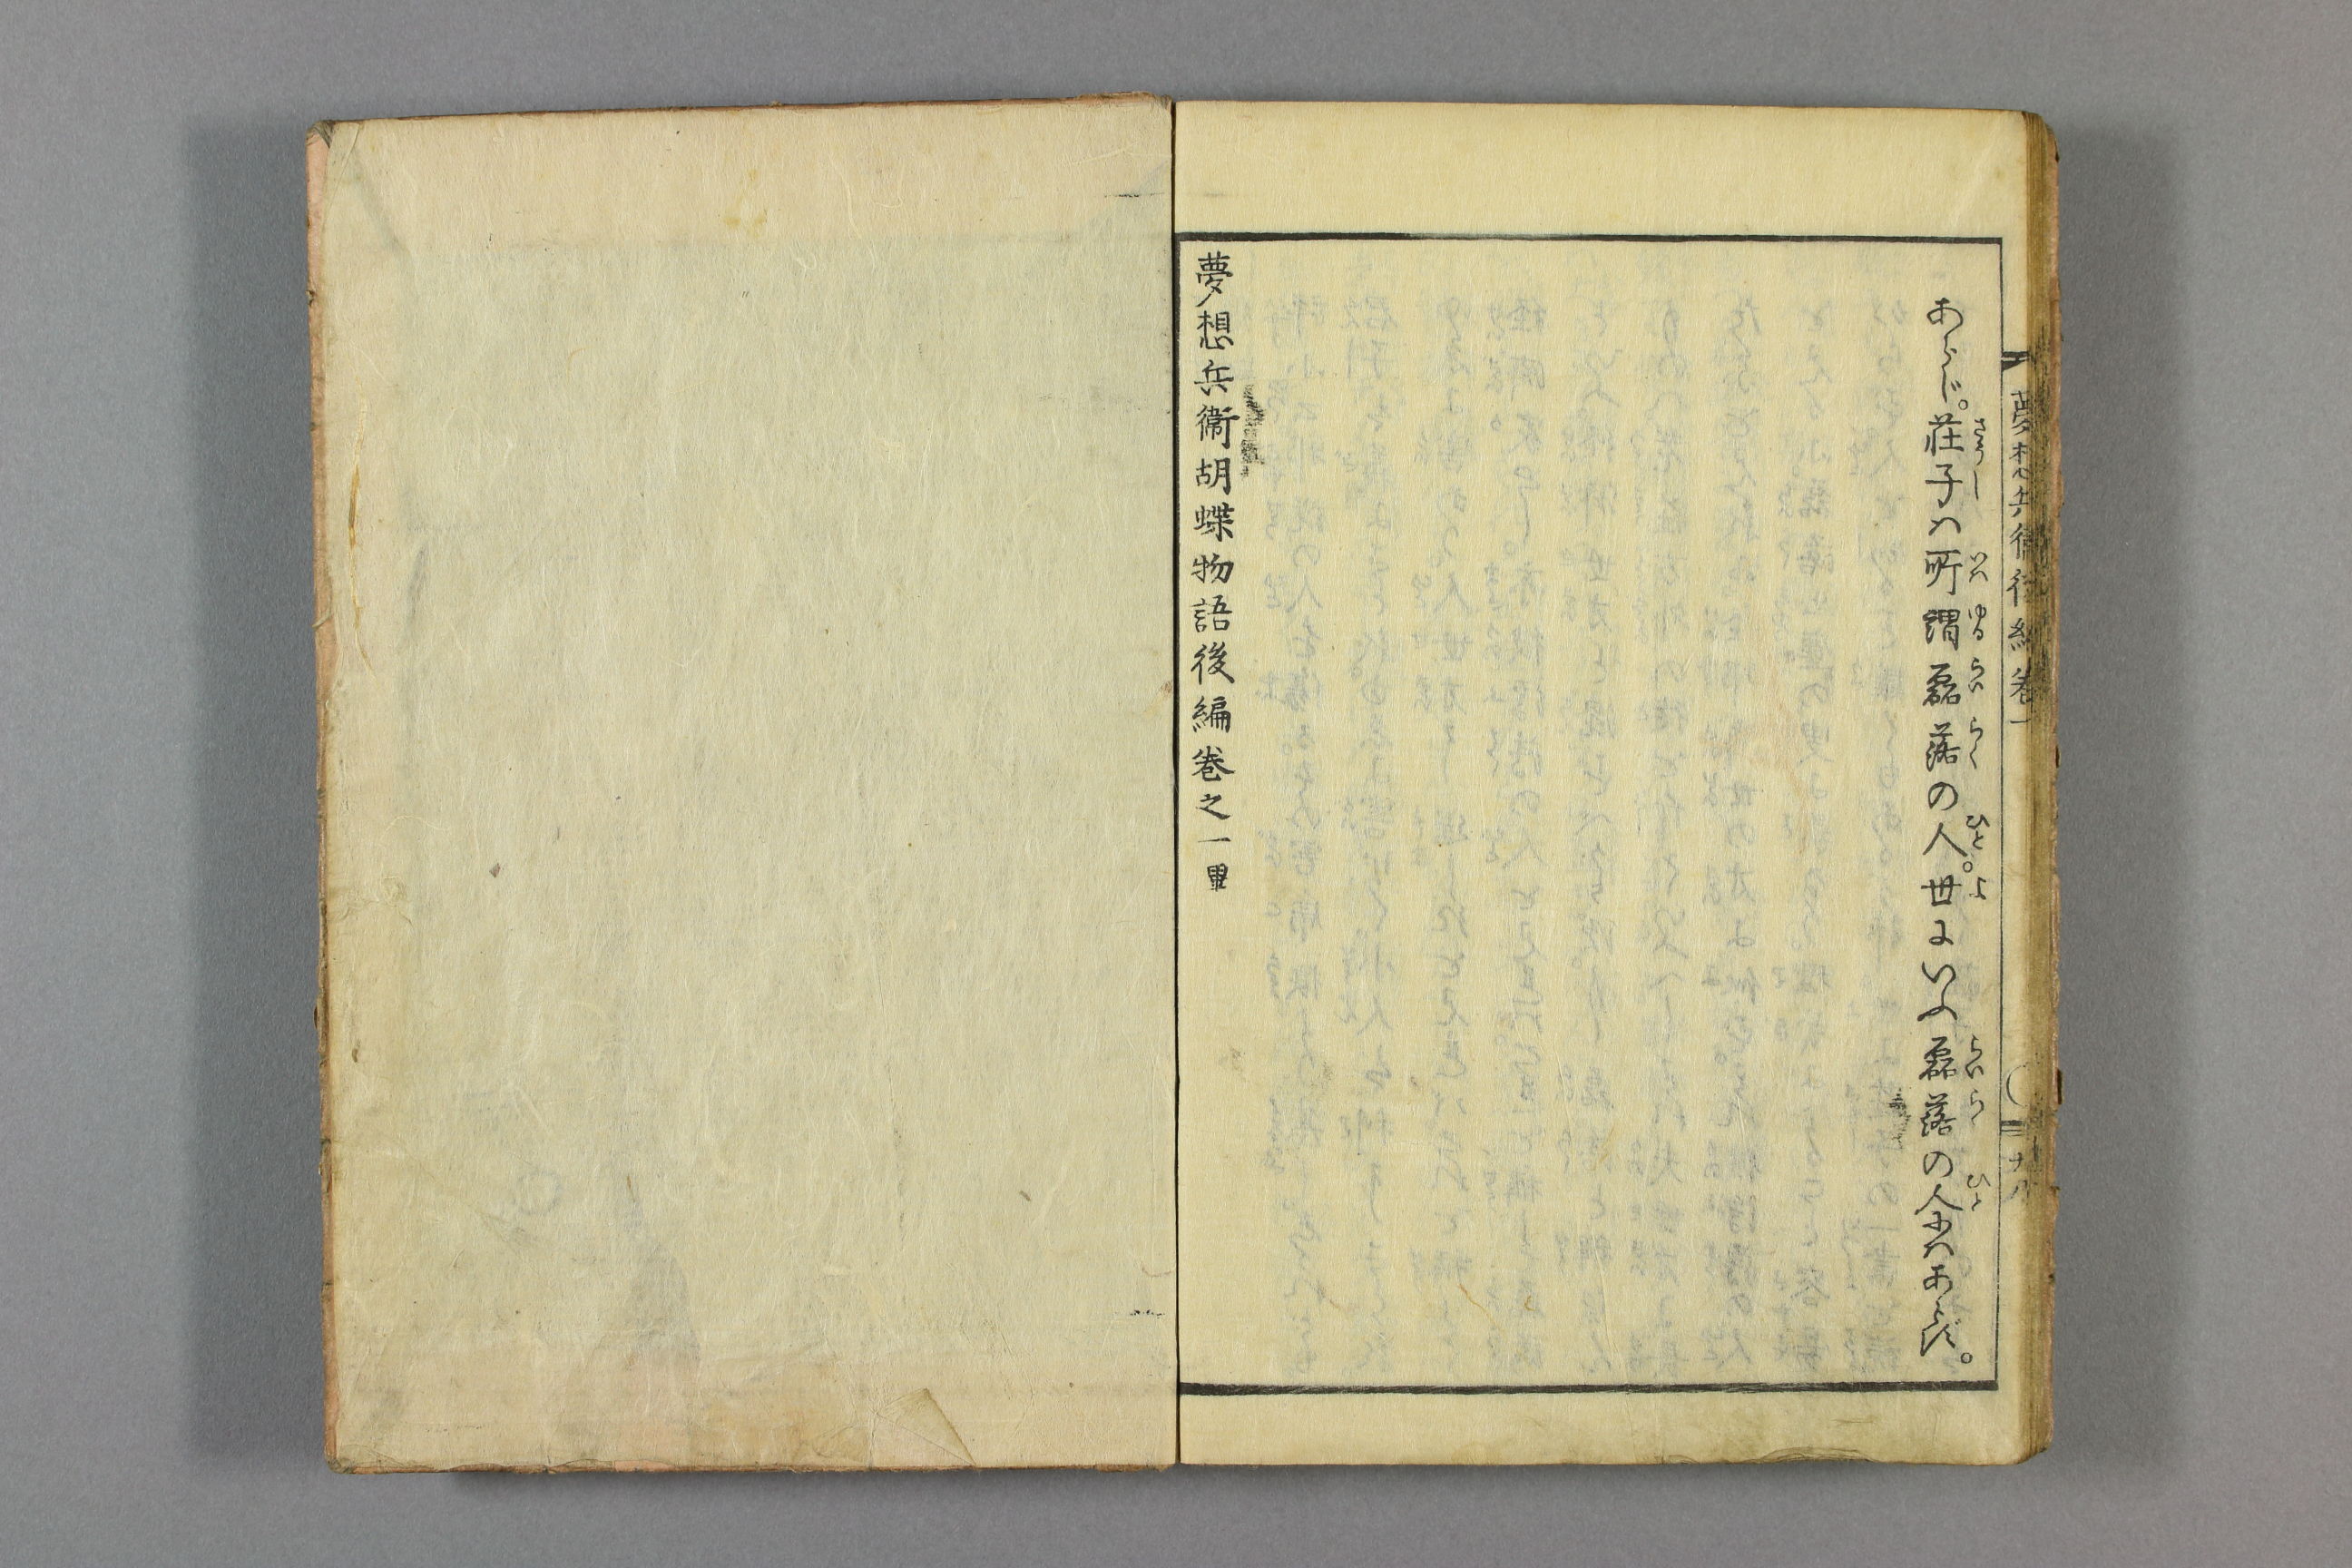 あらじ。荘子は所謂磊落の人。世にいふ磊落の人にはあらず。
夢想兵衛胡蝶物語後編巻之一畢